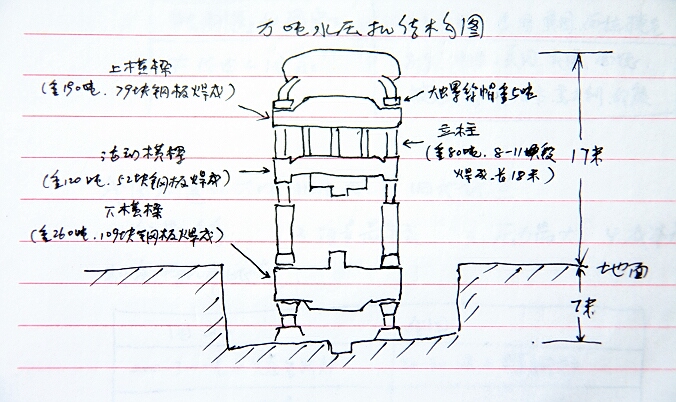 万吨水压机结构图
上横樑
(重190吨、79块钢板焊成)
大螺丝帽重5吨
立柱
(重80吨、8-11吨段
焊成、长18米)
活动横樑
(重120吨、52块钢板焊成)
下横樑
(重260吨、109块钢板焊成)
17米
地面
7米